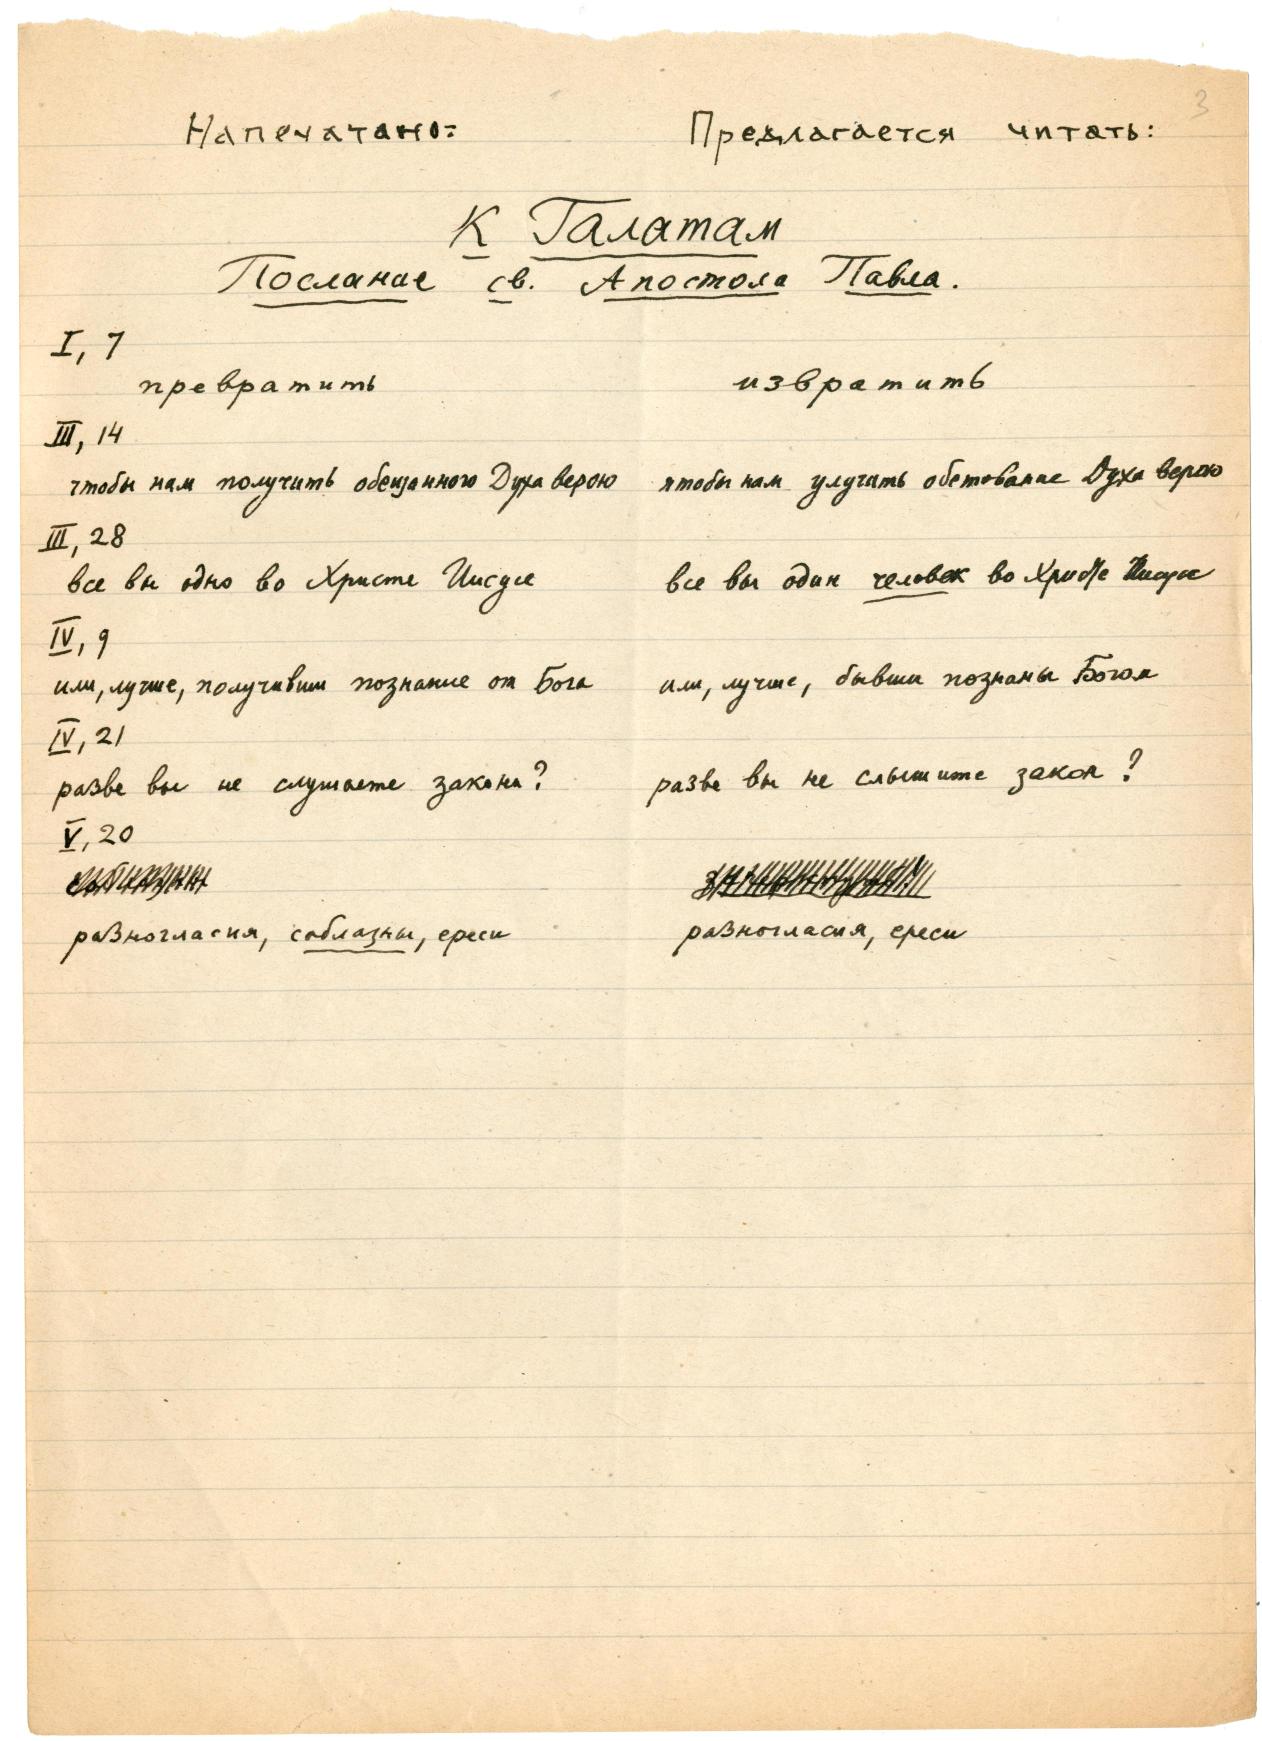 3
Напечатано: Предлагается читать:
К Галатам
Послание св. Апостола Павла.
I, 7
превратить извратить
III, 14
чтобы нам получить обещанного Духа верою чтобы нам улучить обетование Духа верою
III, 28
все вы одно во Христе Иисусе все вы один человек во Христе Иисусе
IV, 9
или, лучше, получивши познание от Бога или, лучше, бывши познаны Богом
IV, 21
разве вы не слушаете закона? разве вы не слышите закон?
V, 20
разногласия, соблазны, ереси разногласия, ереси